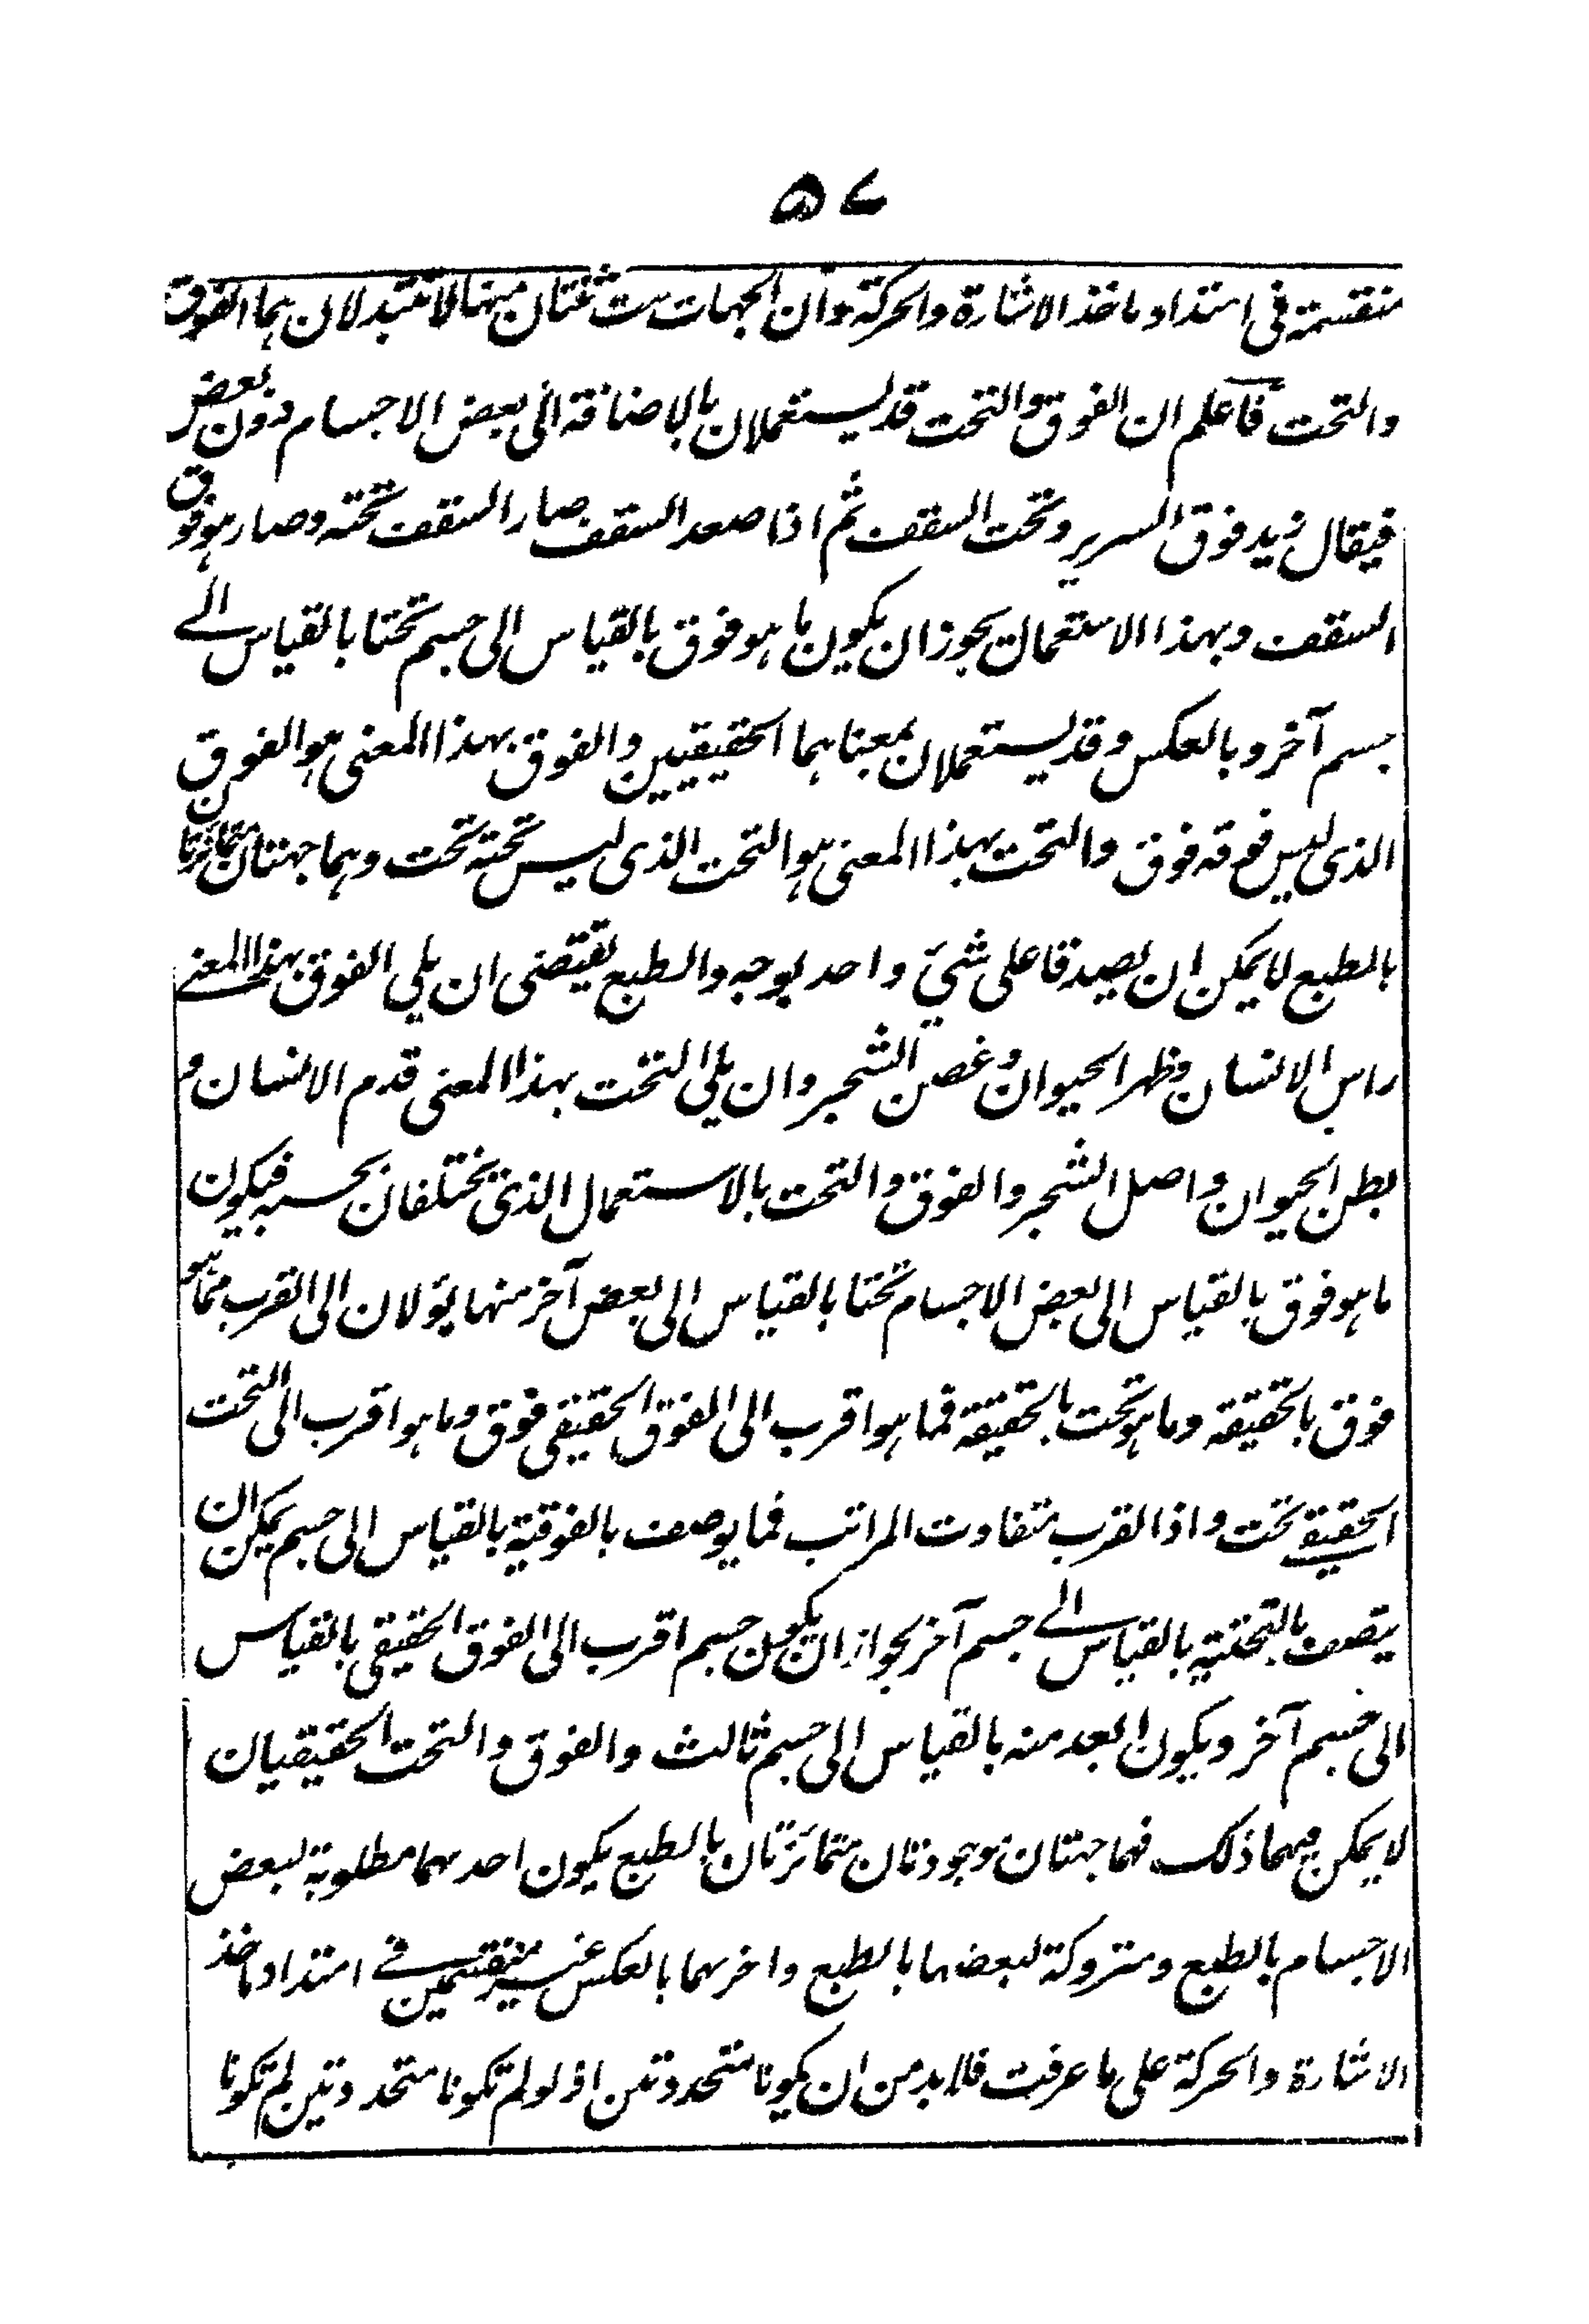 ۵۷
منقسمة فى امتداد ماخذ الاشارة والحركة وان الجهات ست ثنتان منها لا تتبدلان هما الفوق
والتحت فاعلم ان الفوق والتحت قد يستعملان بالاضافة الى بعض الاجسام دون بعض
فيقال زيد فوق السرير وتحت السقف ثم اذا صعد السقف صار السقف تحته وصار هو فوق
السقف وبهذا الاستعمال يجوز ان يكون ما هو فوق بالقياس الى جسم تحتا بالقياس الے
جسم آخر وبالعكس وقد يستعملان بمعناهما الحقيقيين والفوق بهذا المعنى هو الفوق
الذى ليس فوقه فوق والتحت بهذا المعنى هو التحت الذى ليس تحته تحت وهما جهتان متمائزتان
بالطبع لا يمكن ان يصدقا على شئ واحد بوجه والطبع يقتضى ان يلى الفوق بهذا المعنے
راس الانسان وظهر الحيوان وغصن الشجر وان يلى التحت بهذا المعنى قدم الانسان و
بطن الحيوان واصل الشجر والفوق والتحت بالاستعمال الذى يختلفان بحسبه فيكون
ما هو فوق بالقياس الى بعض الاجسام تحتا بالقياس الى بعض آخر منها يؤلان الى القرب مما هو
فوق بالحقيقة وما هو تحت بالحقيقة فما هو اقرب الى الفوق الحقيقى فوق وما هو اقرب الى التحت
الحقيقے تحت واذا القرب متفاوت المراتب فما يوصف بالفوقية بالقياس الى جسم يمكن ان
يتصف بالتحتية بالقياس الے جسم آخر لجواز ان يكون جسم اقرب الى الفوق الحقيقى بالقياس
الى جسم آخر ويكون ابعد منه بالقياس الى جسم ثالث والفوق والتحت الحقيقيان
لا يمكن فيهما ذلك فهما جهتان موجودتان متمائزتان بالطبع يكون احدهما مطلوبة لبعض
الاجسام بالطبع ومتروكة لبعضها بالطبع واخرهما بالعكس غير منقسمين فے امتداد ماخذ
الاشارة والحركة على ما عرفت فلا بد من ان يكونا متحددتين اذ لو لم تكونا متحددتين لم تكونا